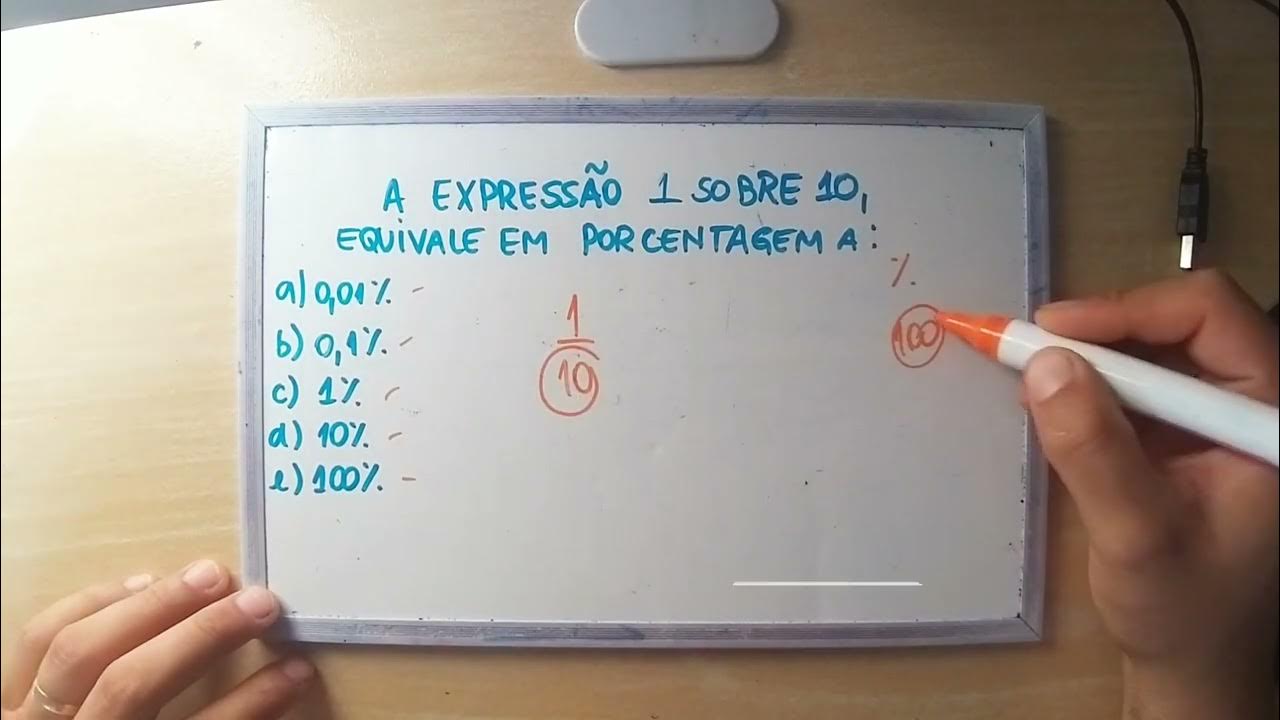 A EXPRESSÃO 1 SOBRE 10,
EQUIVALE EM PORCENTAGEM A:
a) 0,01%
b) 0,1%
c) 1%
d) 10%
e) 100%
1
10
%
100